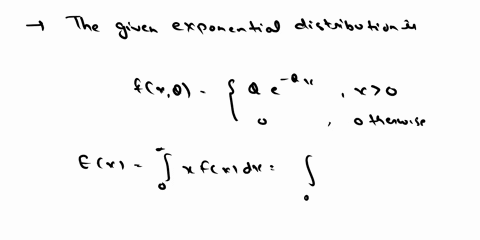 → The given exponential distribution is
f(x,θ) = { θ e^{-θx} , x>0
0 , otherwise
E(x) = ∫_0^∞ x f(x) dx = ∫_0